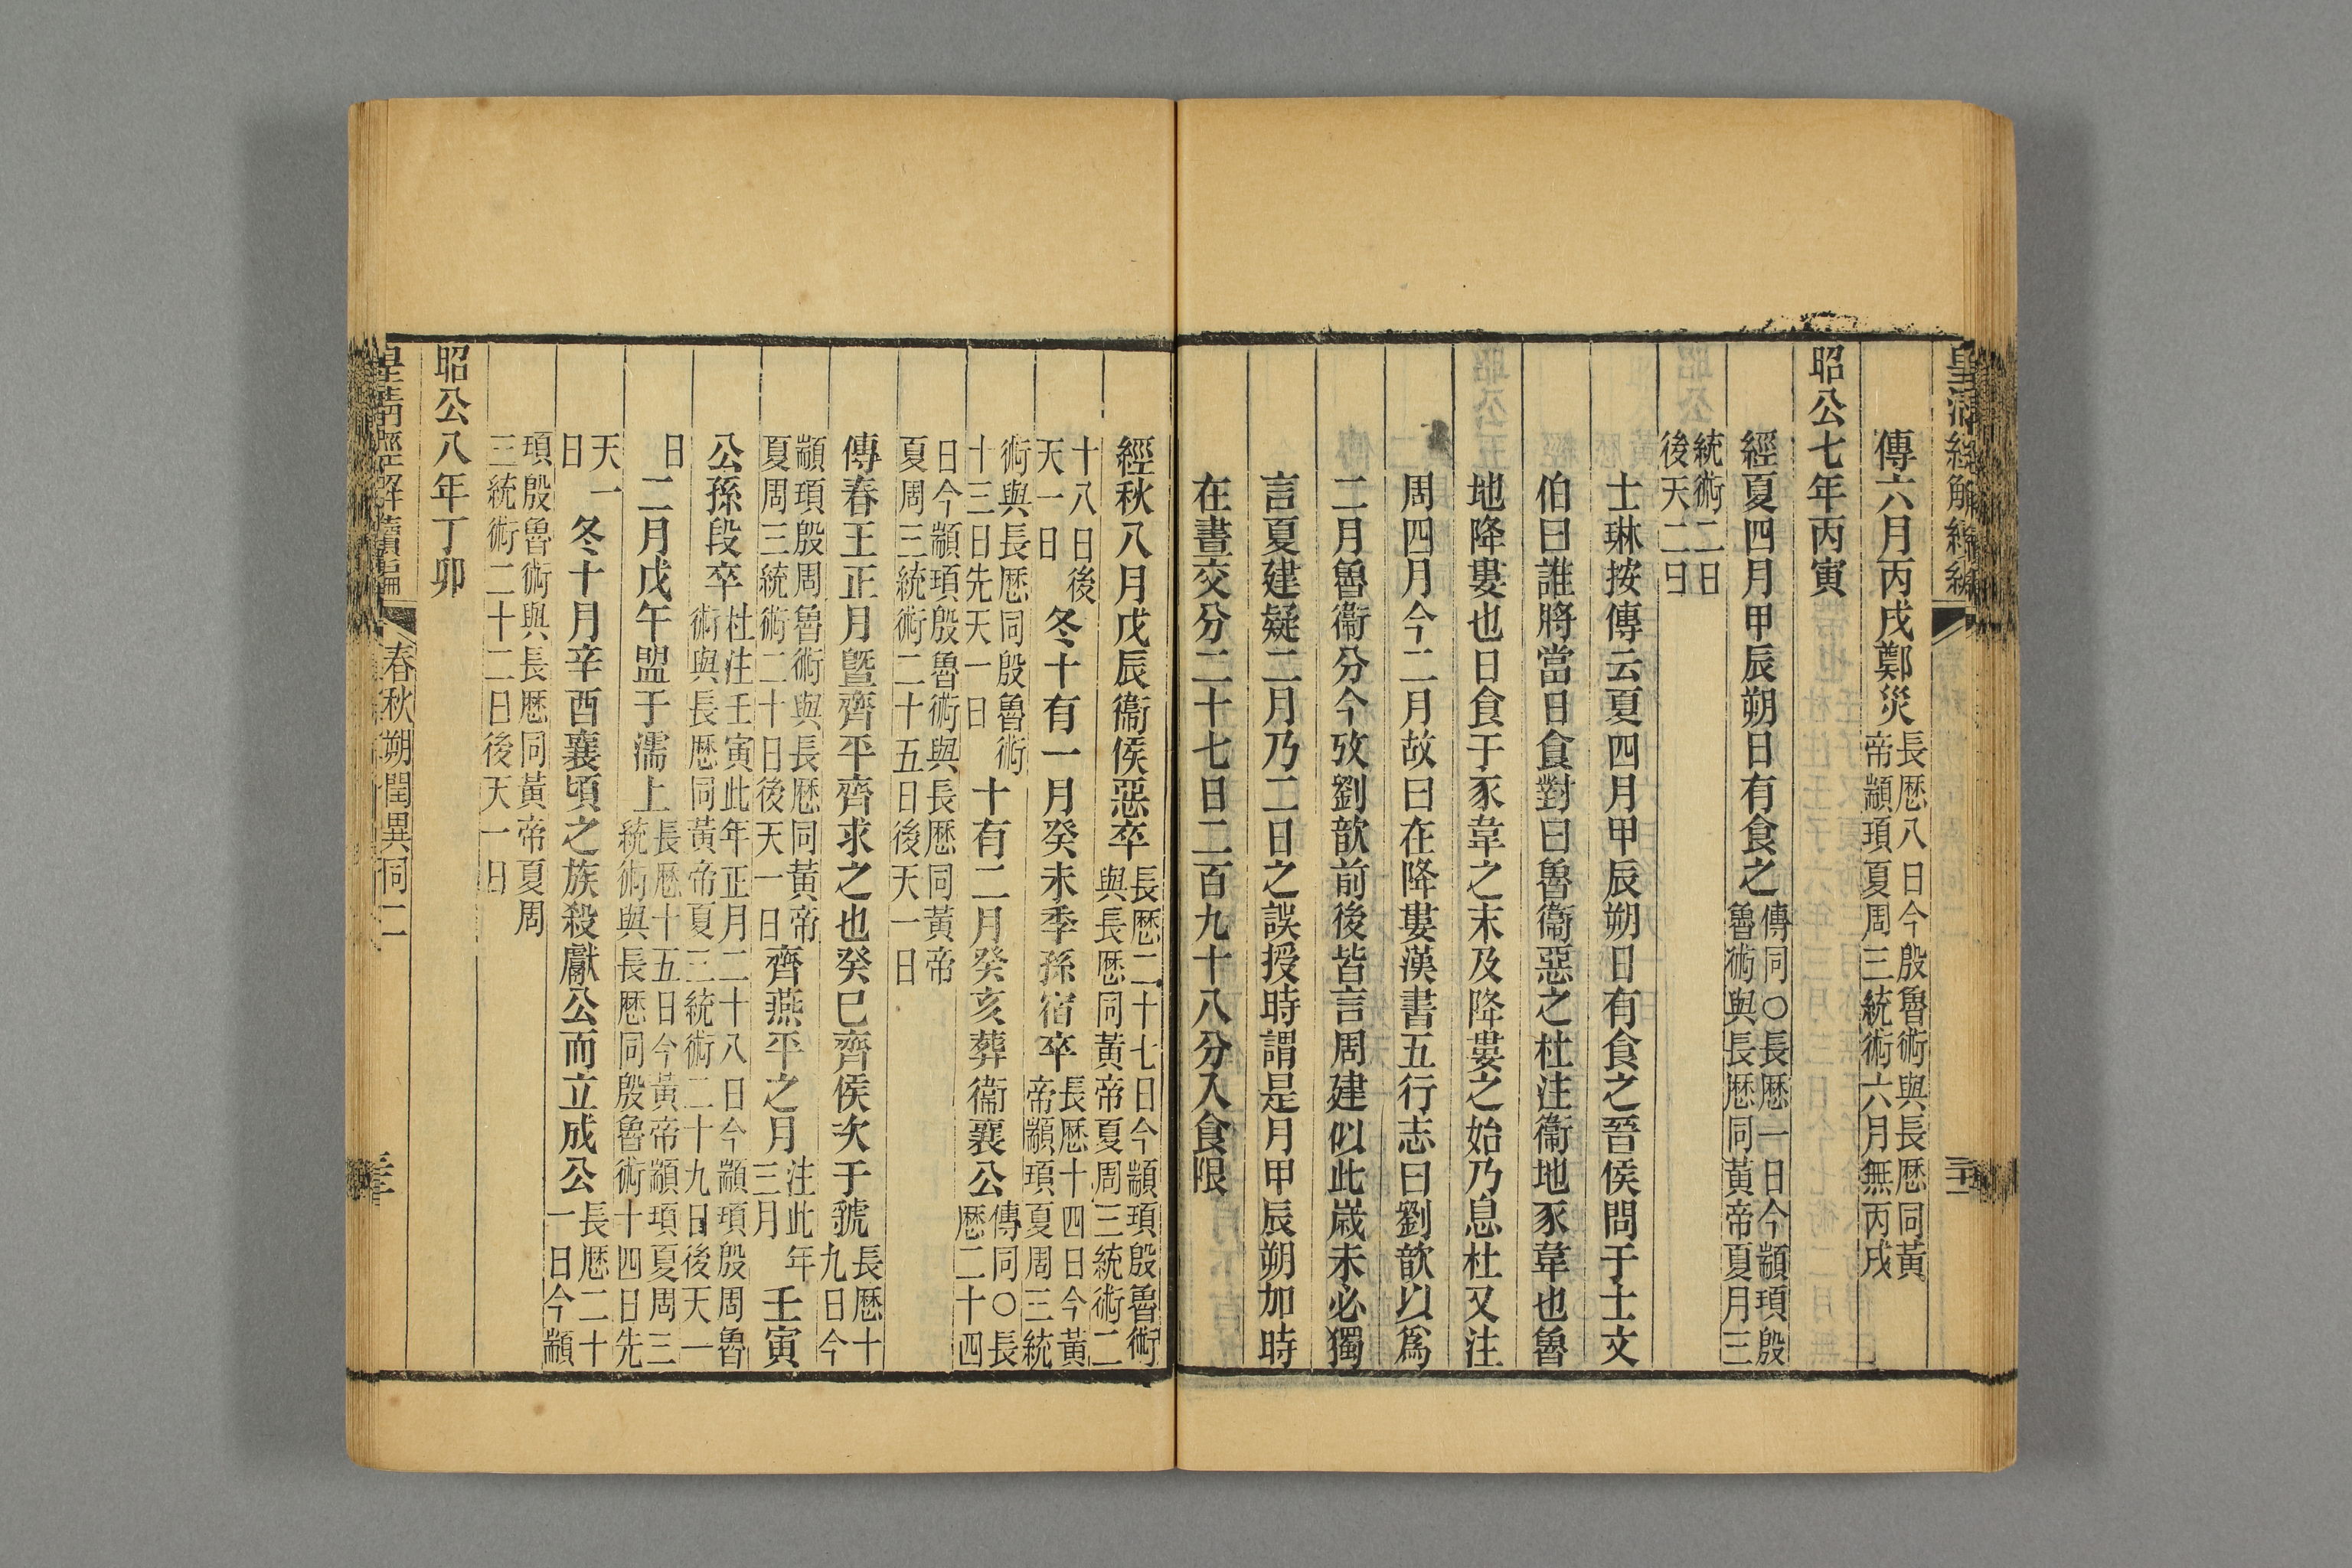 皇清經解續編
傳六月丙戌鄭災長厯八日今殷魯術與長厯同黃
帝顓頊夏周三統術六月無丙戌
昭公七年丙寅
經夏四月甲辰朔日有食之傳同○長厯一日今顓頊殷
魯術與長厯同黃帝夏月三
統術二日
後天二日
士琳按傳云夏四月甲辰朔日有食之晉侯問于士文
伯曰誰將當日食對曰魯衞惡之杜注衞地豕韋也魯
地降婁也日食于豕韋之末及降婁之始乃息杜又注
周四月今二月故曰在降婁漢書五行志曰劉歆以爲
二月魯衞分今攷劉歆前後皆言周建似此歲未必獨
言夏建疑二月乃二日之誤授時謂是月甲辰朔加時
在晝交分二十七日二百九十八分入食限
經秋八月戊辰衞侯惡卒長厯二十七日今顓頊殷魯術
與長厯同黃帝夏周三統術二
十八日後
天一日
冬十有一月癸未季孫宿卒長厯十四日今黃
帝顓頊夏周三統
術與長厯同殷魯術
十三日先天一日
十有二月癸亥葬衞襄公傳同○長
厯二十四
日今顓頊殷魯術與長厯同黃帝
夏周三統術二十五日後天一日
傳春王正月暨齊平齊求之也癸巳齊侯次于虢長厯十
九日今
顓頊殷周魯術與長厯同黃帝
夏周三統術二十日後天一日
齊燕平之月注此年
三月
壬寅
公孫段卒杜注壬寅此年正月二十八日今顓頊殷周魯
術與長厯同黃帝夏三統術二十九日後天一
日
二月戊午盟于濡上長厯十五日今黃帝顓頊夏周三
統術與長厯同殷魯術十四日先
天一
日
冬十月辛酉襄頃之族殺獻公而立成公長厯二十
一日今顓
頊殷魯術與長厯同黃帝夏周
三統術二十二日後天一日
昭公八年丁卯
皇清經解續編
春秋朔閏異同二